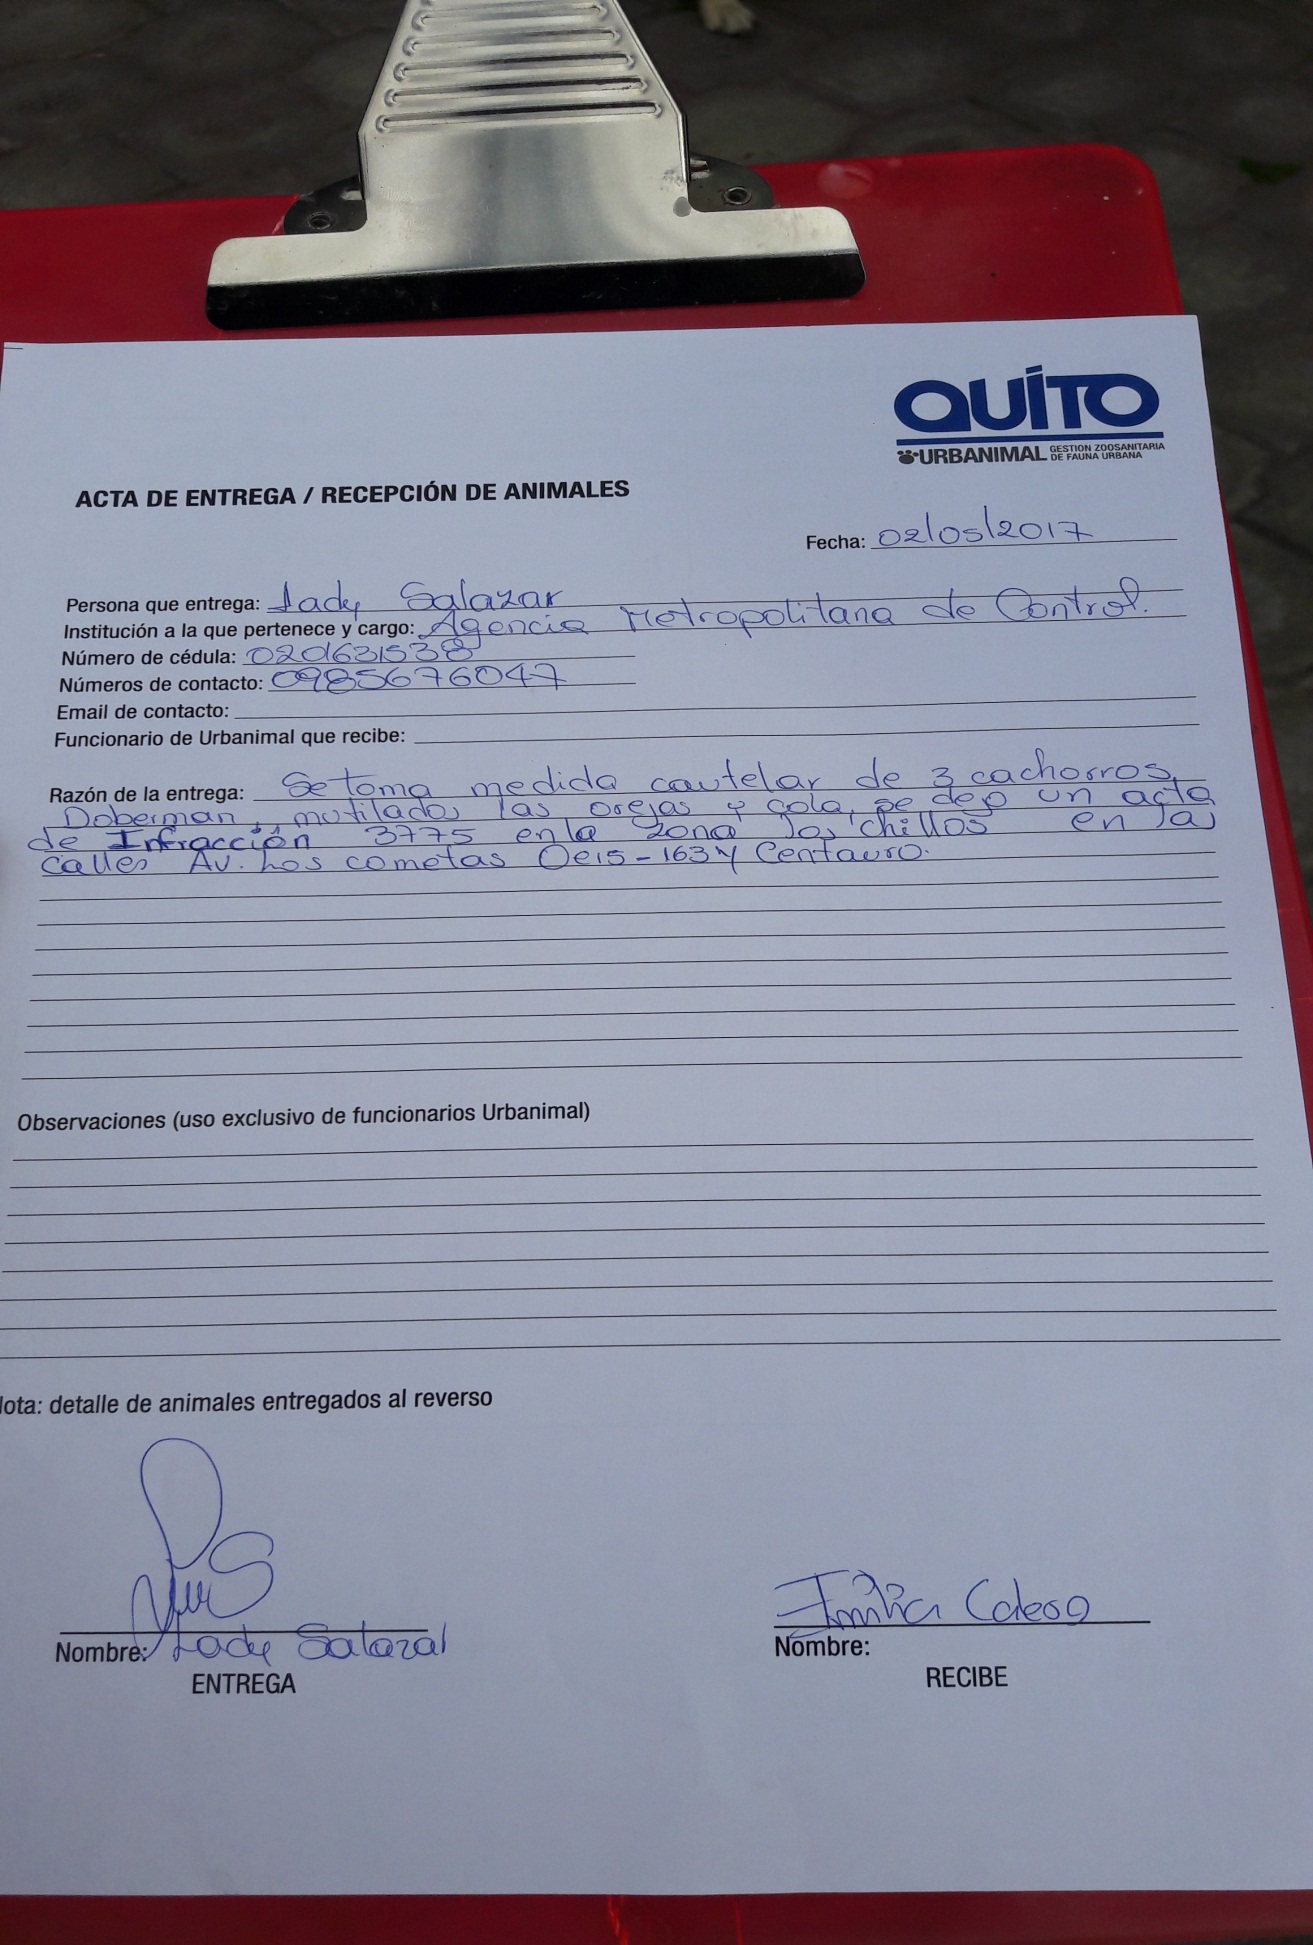 QUITO
URBANIMAL GESTION ZOOSANITARIA
DE FAUNA URBANA
ACTA DE ENTREGA / RECEPCIÓN DE ANIMALES
Fecha: 02/05/2017
Persona que entrega: Lady Salazar
Institución a la que pertenece y cargo: Agencia Metropolitana de Control.
Número de cédula: 0201631538
Números de contacto: 0985676047
Email de contacto:
Funcionario de Urbanimal que recibe:
Razón de la entrega: Se toma medida cautelar de 3 cachorros,
Doberman, mutilados las orejas y cola, se dejo un acta
de Infracción 3775 en la zona los chillos en las
calles Av. Los cometas Oe15-163 y Centauro.
Observaciones (uso exclusivo de funcionarios Urbanimal)
Nota: detalle de animales entregados al reverso
Nombre: Lady Salazar
ENTREGA
Nombre:
RECIBE